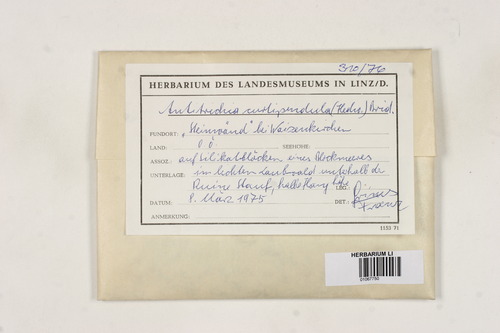 320/76
HERBARIUM DES LANDESMUSEUMS IN LINZ/D.
Antitrichia curtipendula (Hedw.) Brid.
FUNDORT: „Steinwänd" bei Waizenkirchen
LAND: O.Ö. SEEHÖHE:
ASSOZ.: auf Silikatblöcken eines Blockmeeres
UNTERLAGE: im lichten Laubwald unterhalb der
Ruine Stauf, LEG.:
DATUM: 8. März 1975 DET.: Grims Franz
ANMERKUNG:
1153 71
HERBARIUM LI
01067750